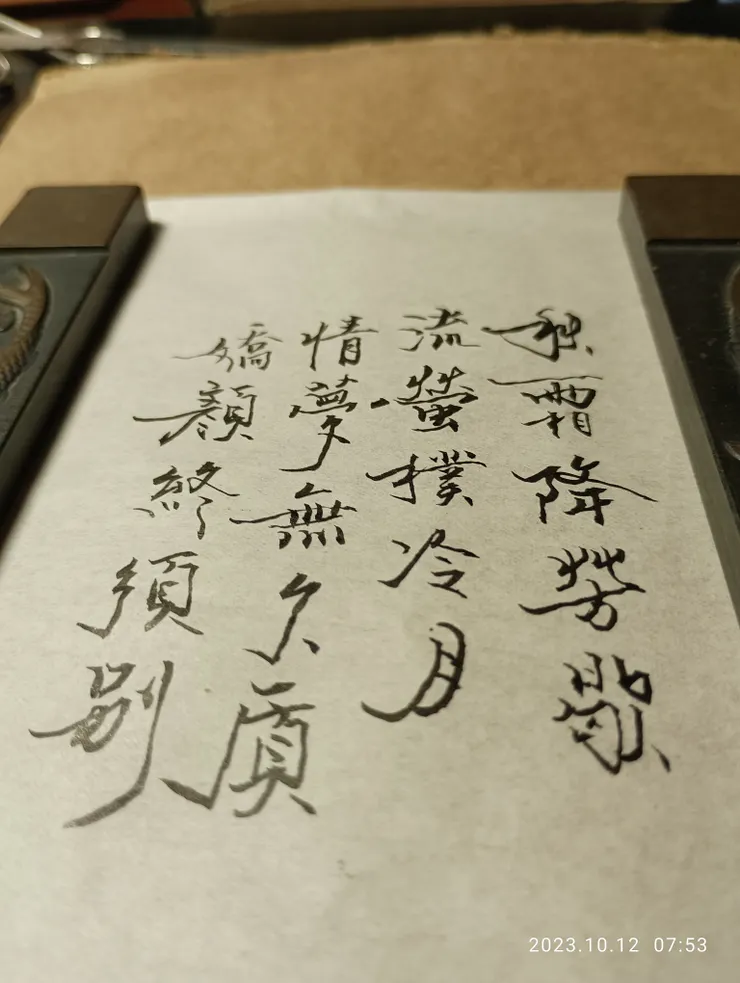 秋霜降芳歇
流螢撲冷月
情夢無久貭
嬌顏終須別
2023.10.12 07:53